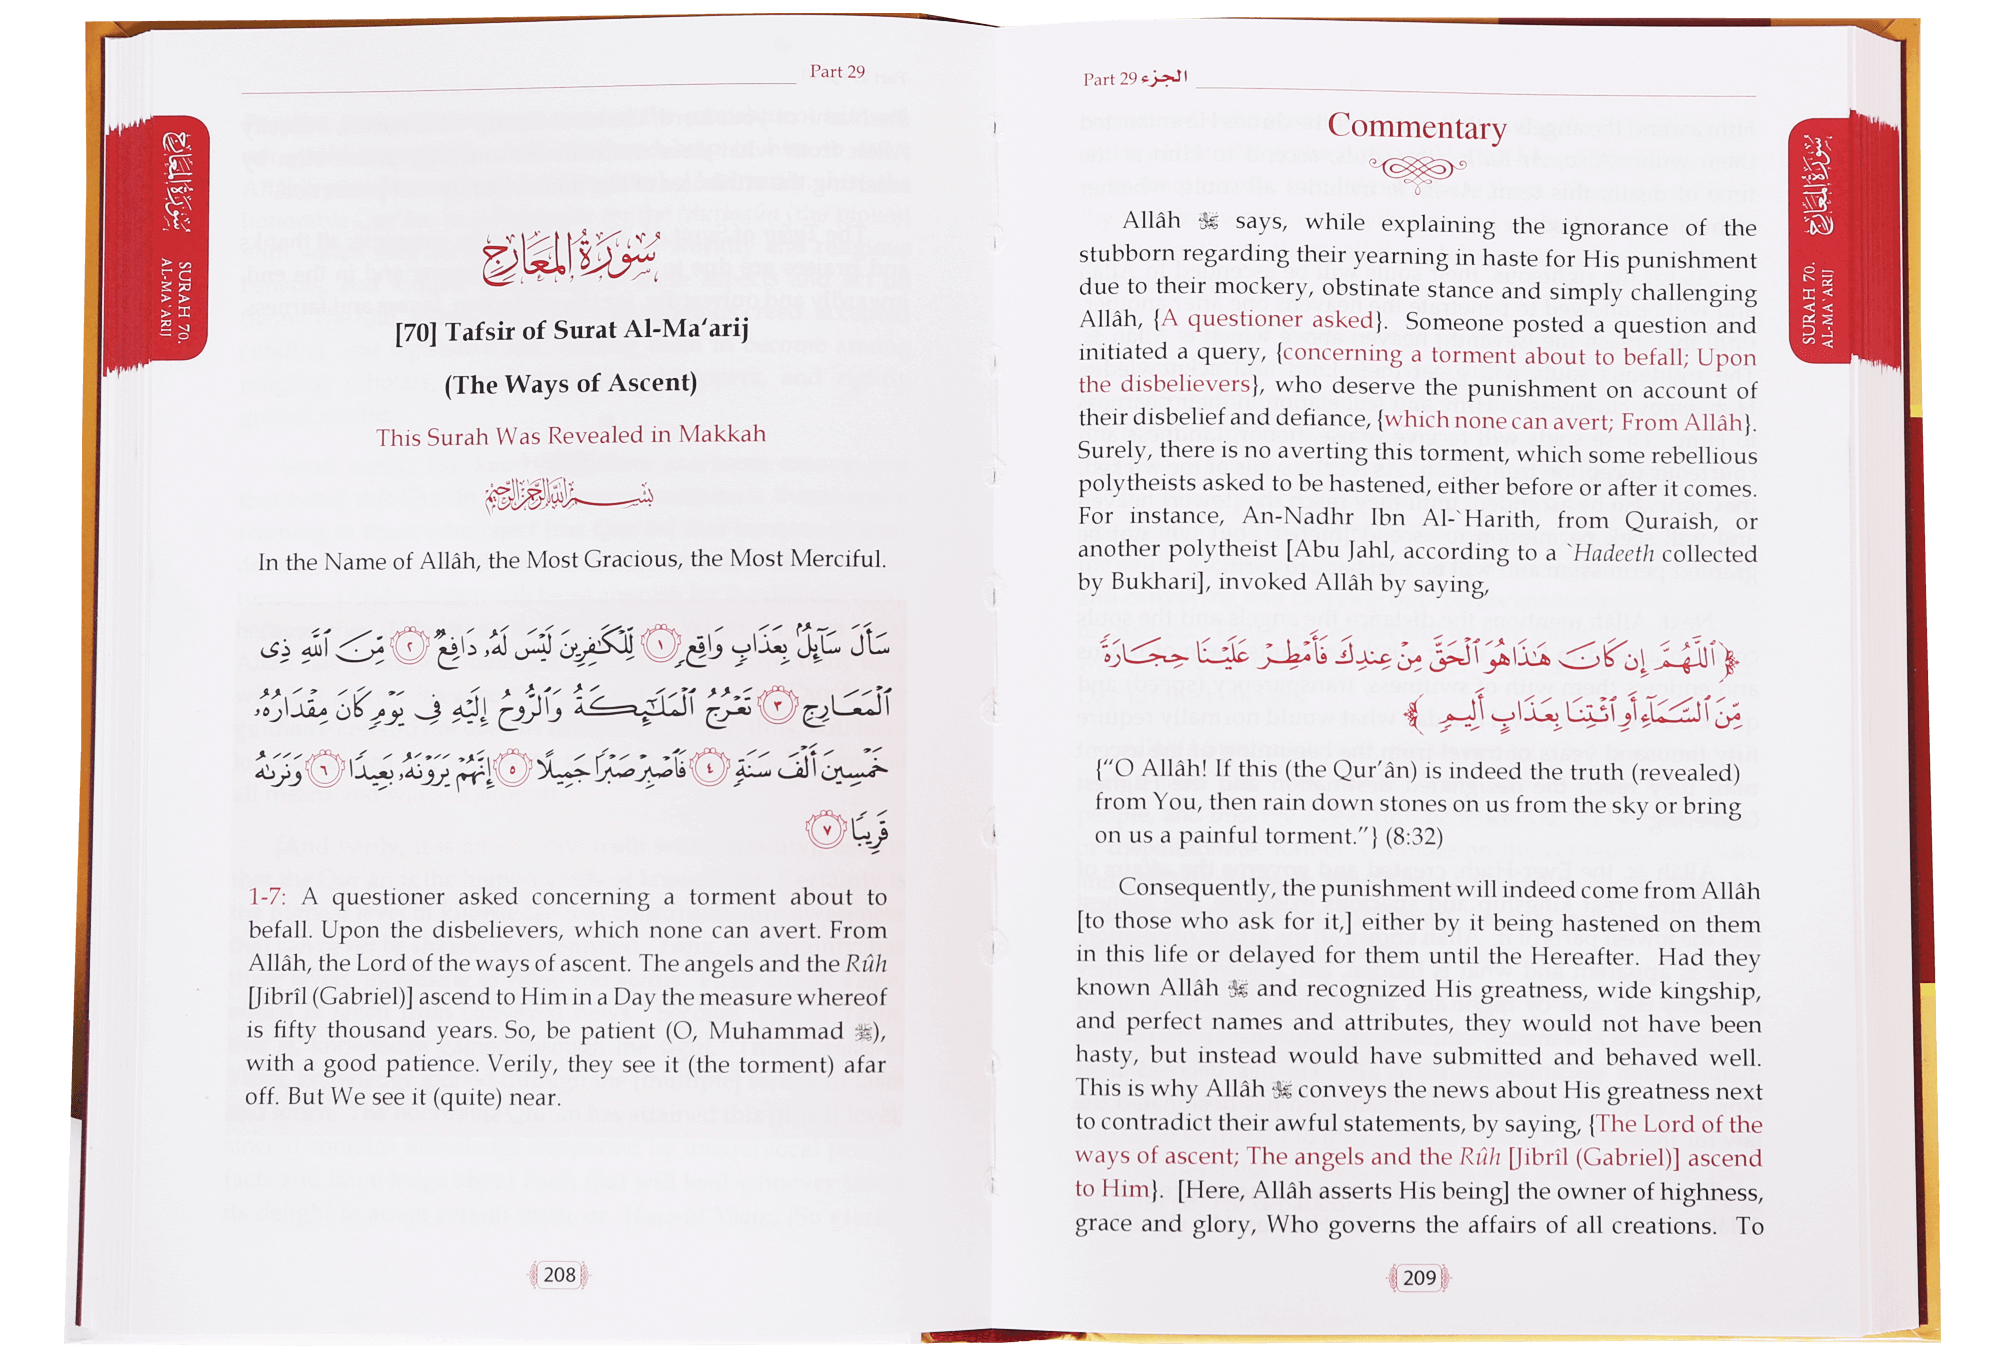 Part 29
سورة المعارج
SURAH 70.
AL-MA`ARIJ
سُورَةُ المَعَارِجِ
[70] Tafsir of Surat Al-Ma‘arij
(The Ways of Ascent)
This Surah Was Revealed in Makkah
بِسْمِ اللَّهِ الرَّحْمَٰنِ الرَّحِيمِ
In the Name of Allâh, the Most Gracious, the Most Merciful.
سَأَلَ سَآئِلٌۢ بِعَذَابٍ وَاقِعٍ ١ لِّلْكَٰفِرِينَ لَيْسَ لَهُۥ دَافِعٌ ٢ مِّنَ ٱللَّهِ ذِى
ٱلْمَعَارِجِ ٣ تَعْرُجُ ٱلْمَلَٰٓئِكَةُ وَٱلرُّوحُ إِلَيْهِ فِى يَوْمٍ كَانَ مِقْدَارُهُۥ
خَمْسِينَ أَلْفَ سَنَةٍ ٤ فَٱصْبِرْ صَبْرًا جَمِيلًا ٥ إِنَّهُمْ يَرَوْنَهُۥ بَعِيدًا ٦ وَنَرَىٰهُ
قَرِيبًا ٧
1-7: A questioner asked concerning a torment about to
befall. Upon the disbelievers, which none can avert. From
Allâh, the Lord of the ways of ascent. The angels and the Rûh
[Jibrîl (Gabriel)] ascend to Him in a Day the measure whereof
is fifty thousand years. So, be patient (O, Muhammad ﷺ),
with a good patience. Verily, they see it (the torment) afar
off. But We see it (quite) near.
208
Part 29 الجزء
سورة المعارج
SURAH 70.
AL-MA`ARIJ
Commentary
Allâh says, while explaining the ignorance of the
stubborn regarding their yearning in haste for His punishment
due to their mockery, obstinate stance and simply challenging
Allâh, {A questioner asked}. Someone posted a question and
initiated a query, {concerning a torment about to befall; Upon
the disbelievers}, who deserve the punishment on account of
their disbelief and defiance, {which none can avert; From Allâh}.
Surely, there is no averting this torment, which some rebellious
polytheists asked to be hastened, either before or after it comes.
For instance, An-Nadhr Ibn Al-`Harith, from Quraish, or
another polytheist [Abu Jahl, according to a `Hadeeth collected
by Bukhari], invoked Allâh by saying,
﴿ ٱللَّهُمَّ إِن كَانَ هَٰذَا هُوَ ٱلْحَقَّ مِنْ عِندِكَ فَأَمْطِرْ عَلَيْنَا حِجَارَةً
مِّنَ ٱلسَّمَآءِ أَوِ ٱئْتِنَا بِعَذَابٍ أَلِيمٍ ﴾
{“O Allâh! If this (the Qur’ân) is indeed the truth (revealed)
from You, then rain down stones on us from the sky or bring
on us a painful torment.”} (8:32)
Consequently, the punishment will indeed come from Allâh
[to those who ask for it,] either by it being hastened on them
in this life or delayed for them until the Hereafter. Had they
known Allâh and recognized His greatness, wide kingship,
and perfect names and attributes, they would not have been
hasty, but instead would have submitted and behaved well.
This is why Allâh conveys the news about His greatness next
to contradict their awful statements, by saying, {The Lord of the
ways of ascent; The angels and the Rûh [Jibrîl (Gabriel)] ascend
to Him}. [Here, Allâh asserts His being] the owner of highness,
grace and glory, Who governs the affairs of all creations. To
209